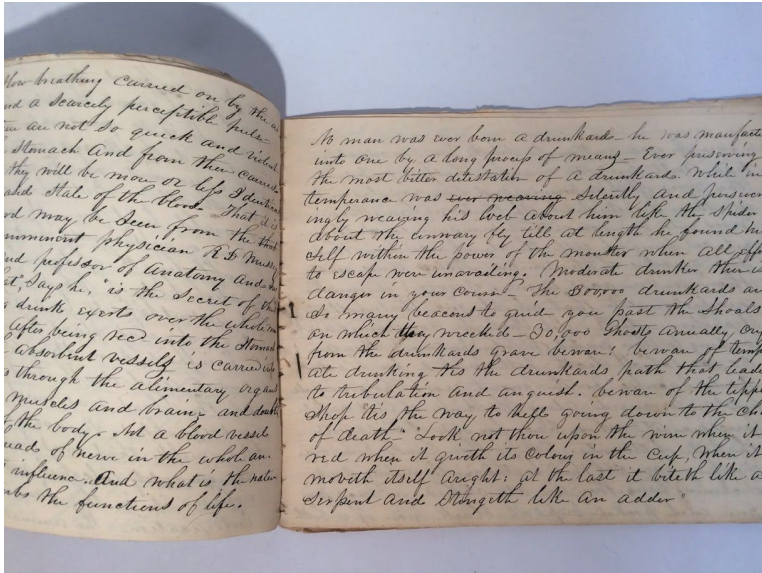 How breathing carried on by the
and a scarcely perceptible pulse
are not so quick and violent
stomach And from thence carried
they will be more or less Identical
and State of the blood. That it is
may be seen from the
imminent physician R D Mussey
and professor of Anatomy and
Says he "is the Secret of the
drink exerts over the whole
After being recd into the Stomach
absorbent vessels is carried into
through the alimentary organs
muscles and brain, and doubt
the body. Not a blood vessel
of nerve in the whole an
influence. And what is the nature
the functions of life.
No man was ever born a drunkard – he was manufact
into one by a long process of means – Ever preserving
the most bitter detestation of a drunkard. While in
temperance was ever weaving Silently And persever
ingly weaving his Web about him like the Spider
about the unwary fly till at length he found him
Self within the power of the monster when all effo
to escape were unavailing. Moderate drinker ther is
danger in your course – The 300,000 drunkards are
So many beacons to guid you past the Shoals
on which they wrecked – 30,000 Ghosts Anually cry
from the drunkards grave beware! beware of temper
ate drinking tis the drunkards path that leads
to tribulation and anguish. beware of the tippl
Shop 'tis the way to hell going down to the Cha
of death" Look not thou upon the wine when it
red when it giveth its colour in the Cup, When it
moveth itself Aright: at the last it biteth like a
Serpent and Stingeth like An adder"